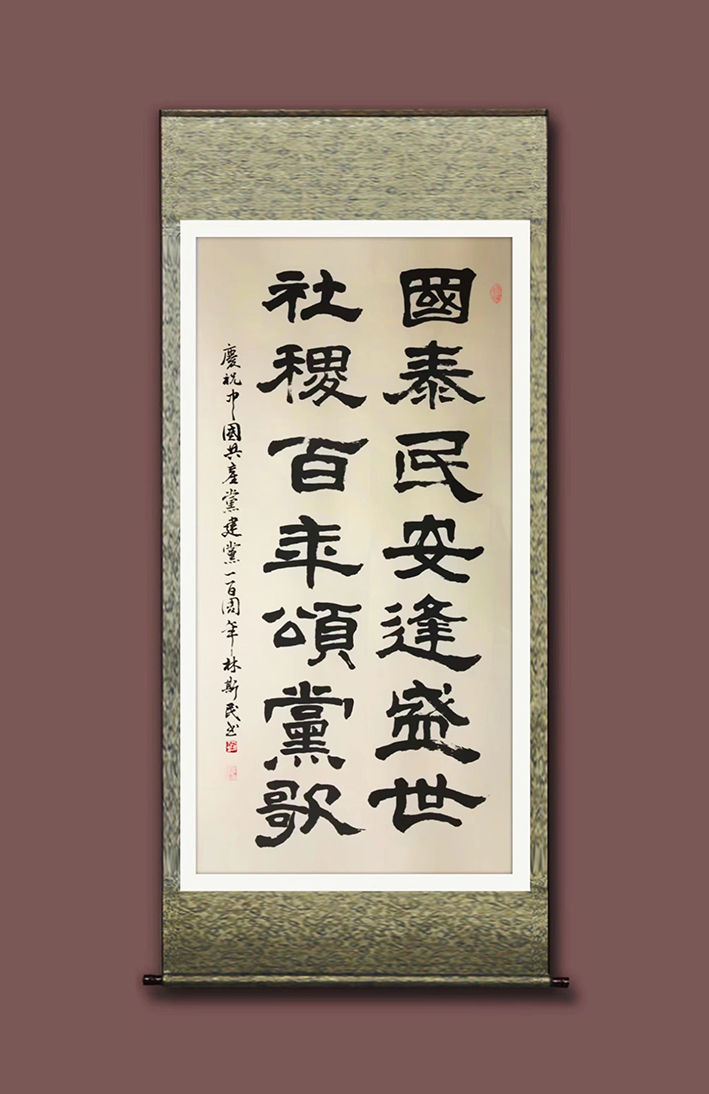 國泰民安逢盛世
社稷百年頌黨歌
慶祝中國共產黨建黨一百周年林斯民书